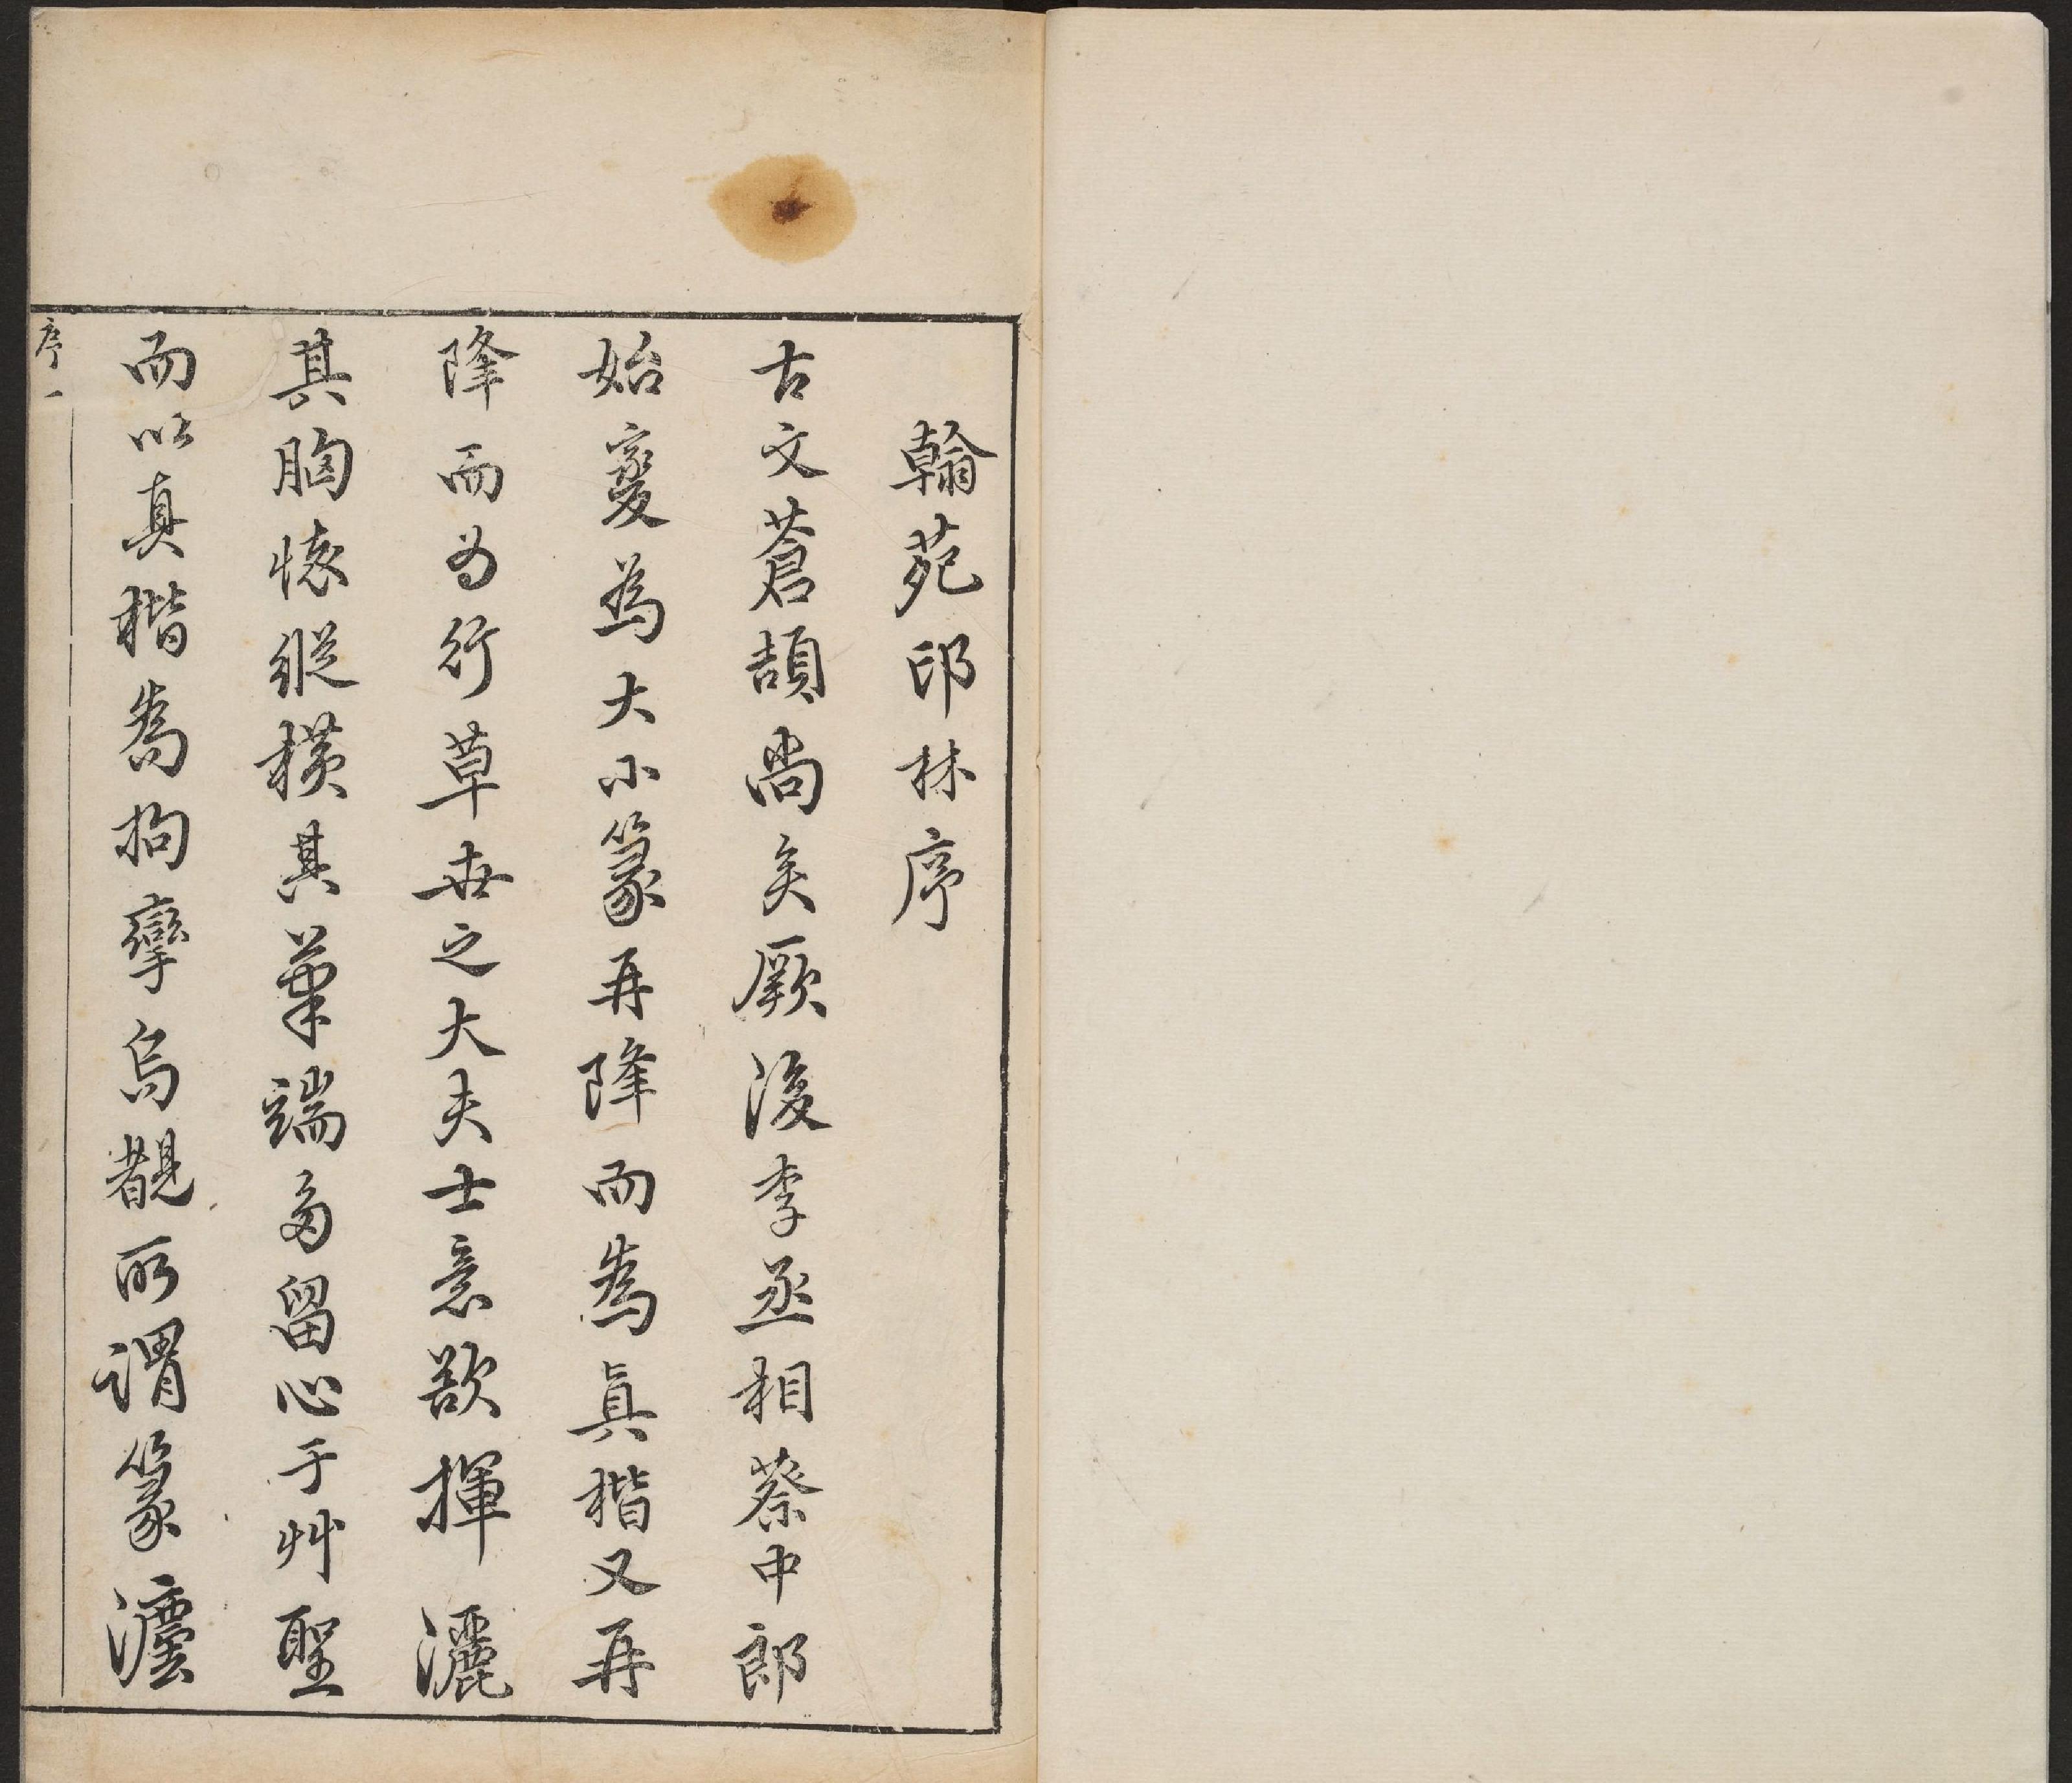 翰苑印林序
古文蒼頡尚矣厥後李丞相蔡中郎
始變為大小篆再降而為眞楷又再
降而為行草世之大夫士意欲揮灑
其胸懷縱橫其筆端多留心于艸聖
而以真楷為拘攣烏覩所謂篆灋
序一